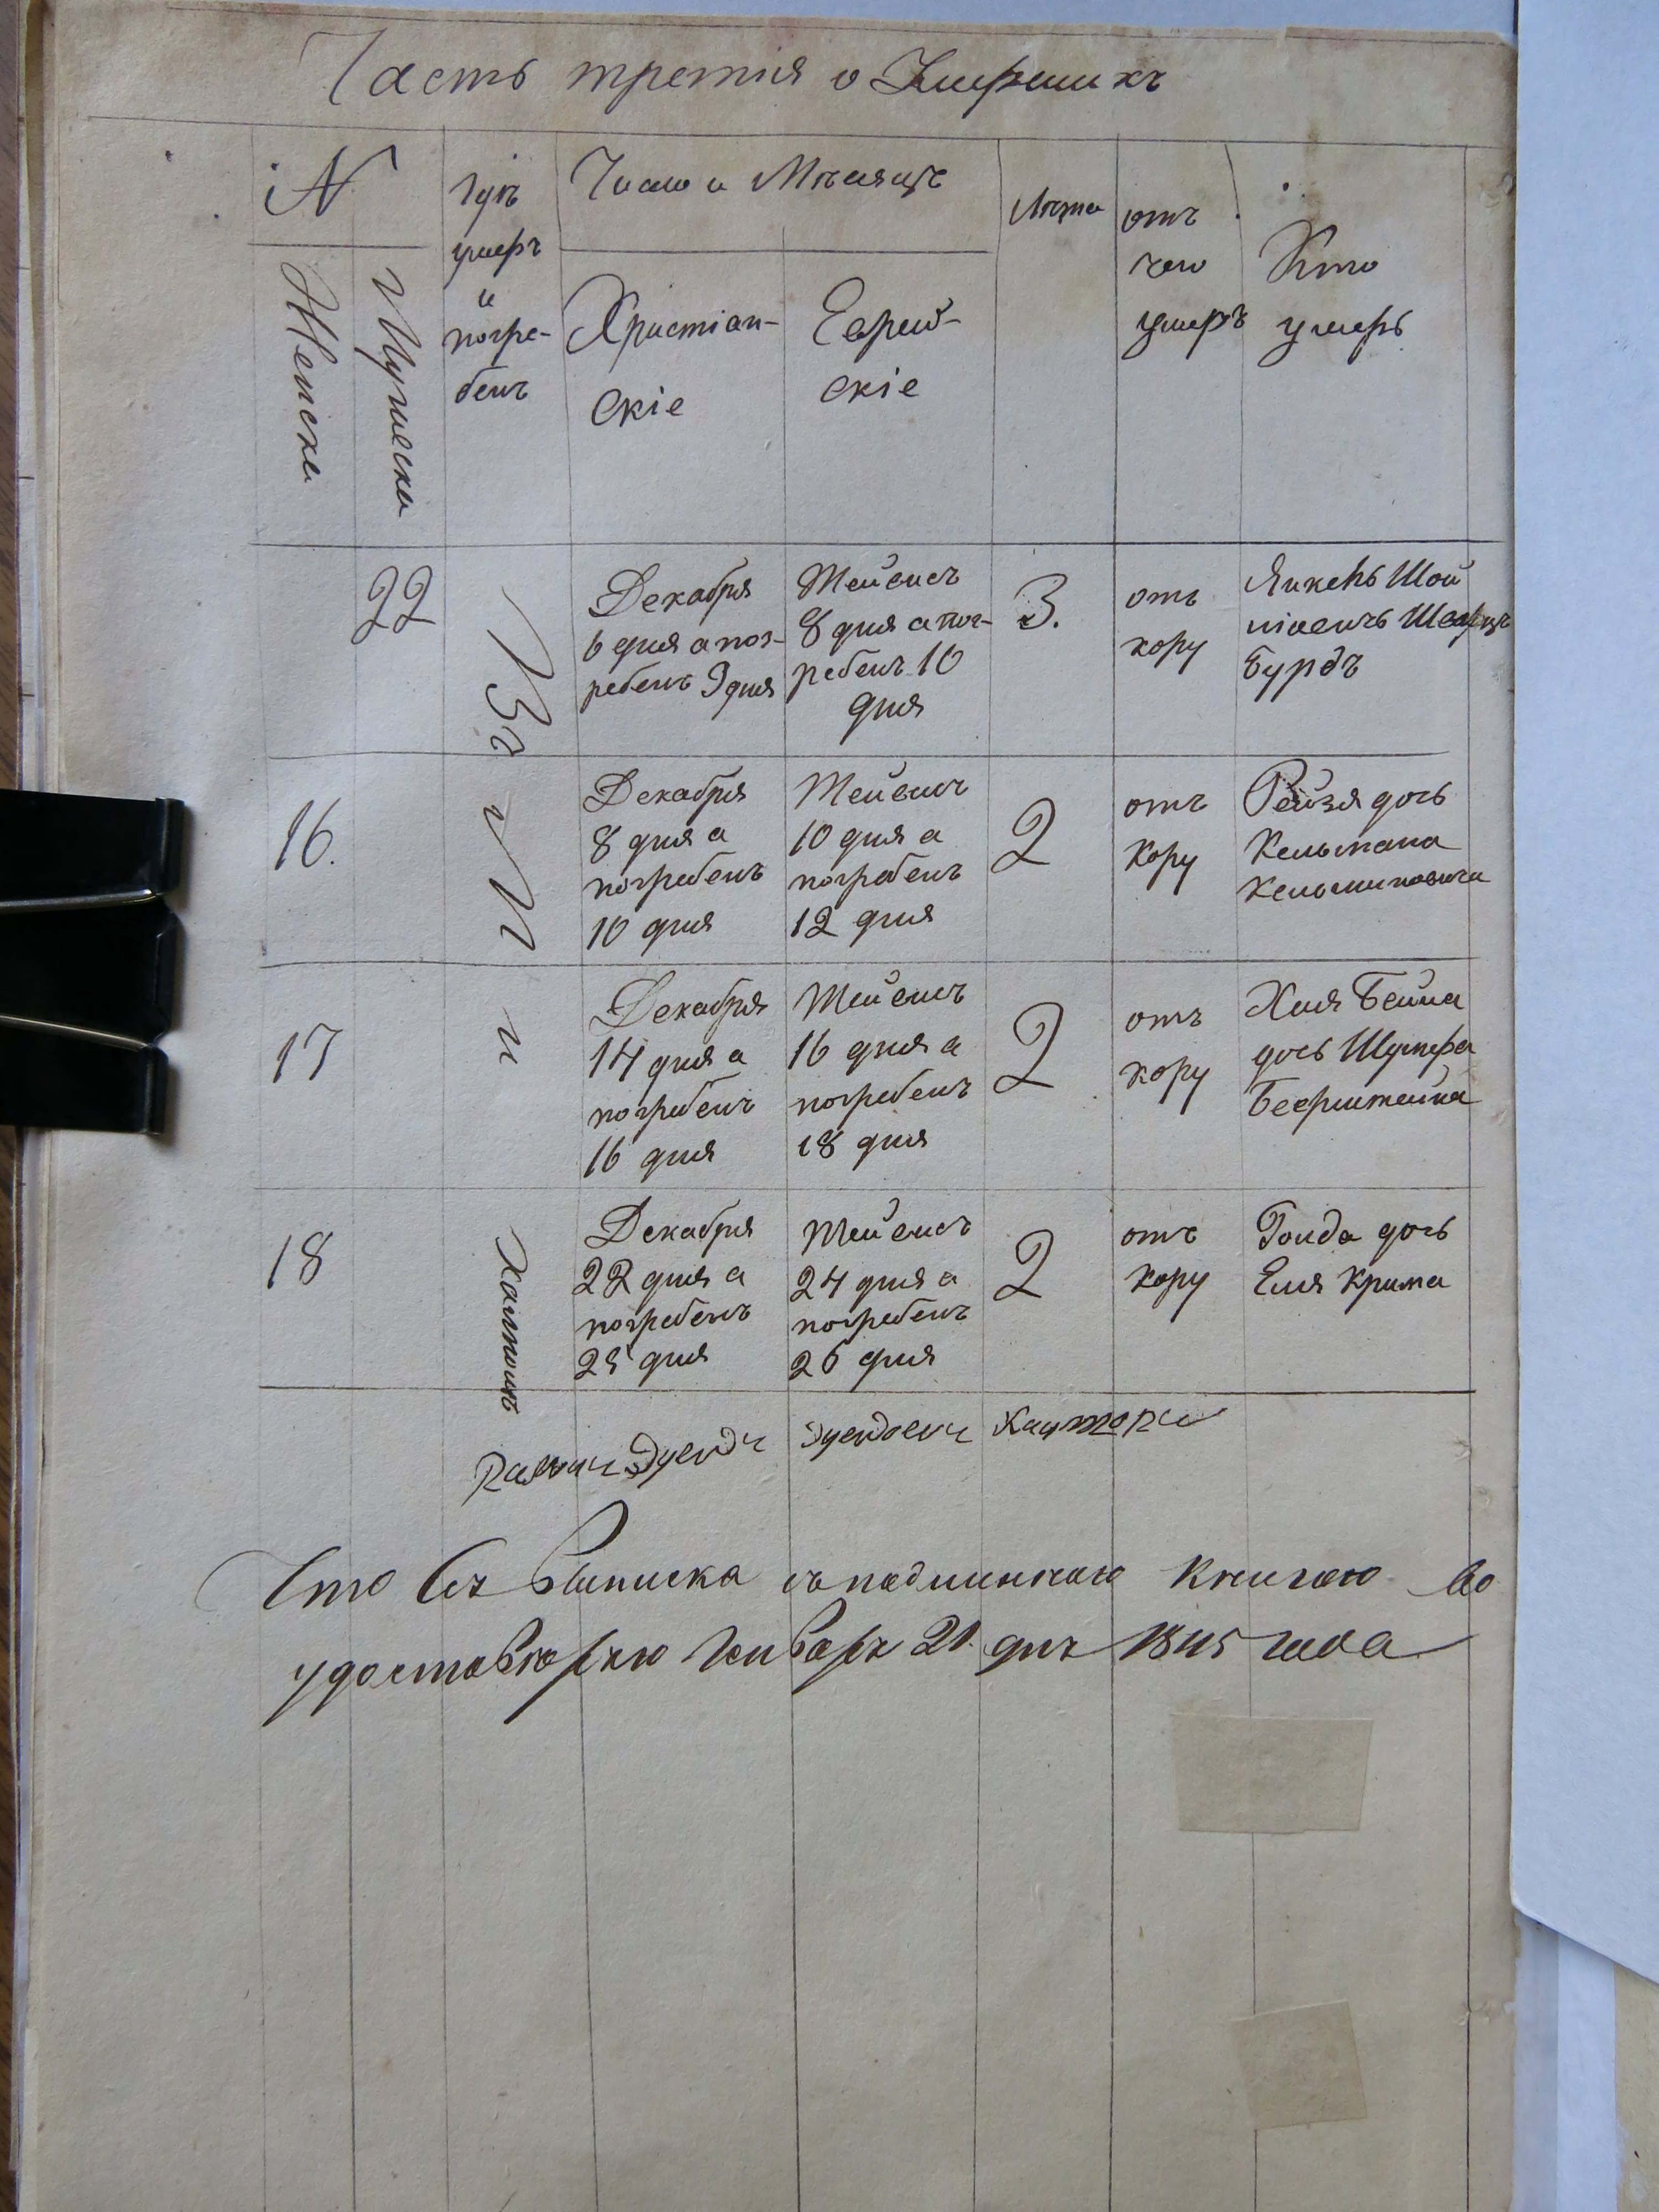 Часть третия о Умершихъ
N
Женски
Мужески
гдѣ
умеръ
и
погре-
бенъ
Число и Мѣсяцъ
Христіан-
скіе
Еврей-
скіе
Лѣта
отъ
чего
умеръ
Кто
умеръ
22
Декабря
6 дня а пог-
ребенъ 9 дня
Тейвисъ
8 дня а пог-
ребенъ 10
дня
3.
отъ
кору
Янкель Шой
Бурдъ
16.
Декабря
8 дня а
погребенъ
10 дня
Тейвисъ
10 дня а
погребенъ
12 дня
2
отъ
кору
Рейзя дочь
Кельмана
Кельмановича
17
Декабря
14 дня а
погребенъ
16 дня
Тейвисъ
16 дня а
погребенъ
18 дня
2
отъ
кору
Хая Бейла
дочь
18
Декабря
22 дня а
погребенъ
25 дня
Тейвисъ
24 дня а
погребенъ
26 дня
2
отъ
кору
Голда дочь
Еля Крима
Что сія Выписка съ подлинною Книгою
Января 21 дня 1845 года